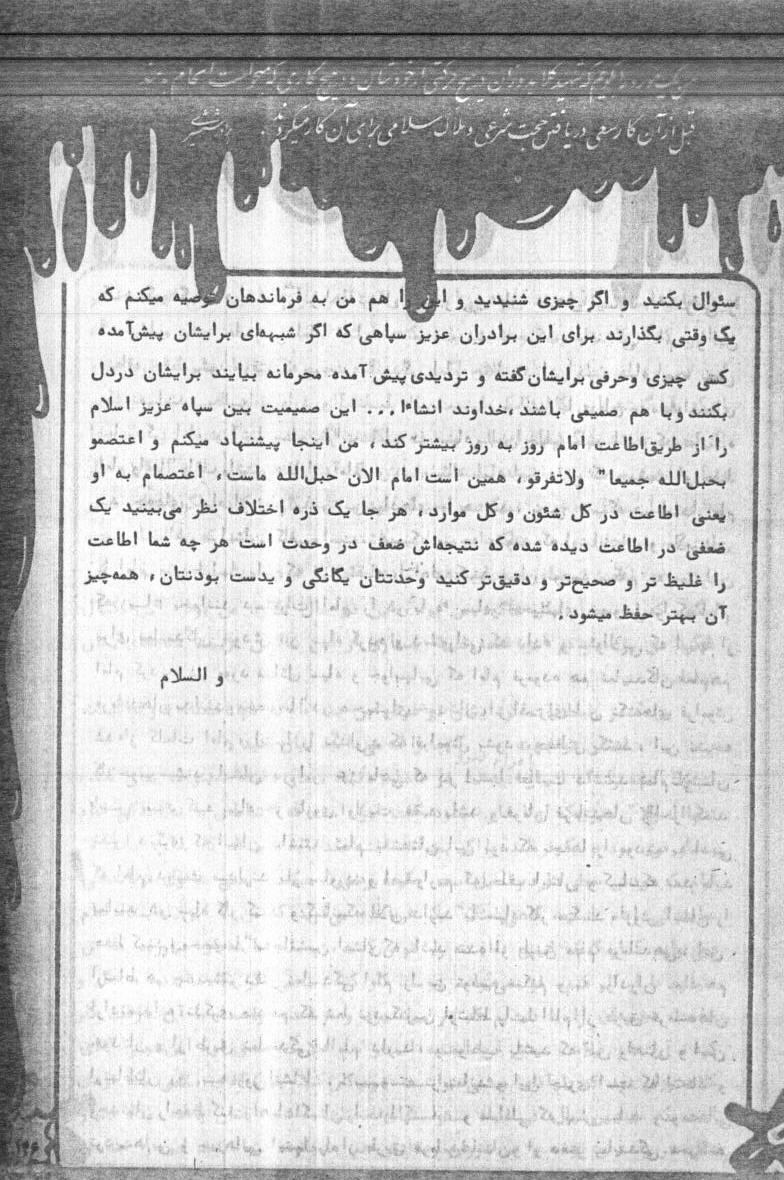 قبل از آن کار سعی در یافتن حجت شرعی و ملاک اسلامی برای آن کار میکردند.
سئوال بکنید و اگر چیزی شنیدید و این را هم من به فرماندهان توصیه میکنم که
یک وقتی بگذارند برای این برادران عزیز سپاهی که اگر شبهه‌ای برایشان پیش‌آمده
کسی چیزی وحرفی برایشان گفته و تردیدی پیش آمده محرمانه بیایند برایشان دردل
بکنند و با هم صمیمی باشند، خداوند انشاءا... این صمیمیت بین سپاه عزیز اسلام
را از طریق اطاعت امام روز به روز بیشتر کند، من اینجا پیشنهاد میکنم و اعتصمو
بحبل‌الله جمیعا" ولاتفرقو، همین است امام الان حبل‌الله ماست، اعتصام به او
یعنی اطاعت در کل شئون و کل موارد، هر جا یک ذره اختلاف نظر می‌بینید یک
ضعفی در اطاعت دیده شده که نتیجه‌اش ضعف در وحدت است هر چه شما اطاعت
را غلیظ تر و صحیح‌تر و دقیق‌تر کنید وحدتتان یگانگی و یدست بودنتان، همه‌چیز
آن بهتر حفظ میشود.
و السلام